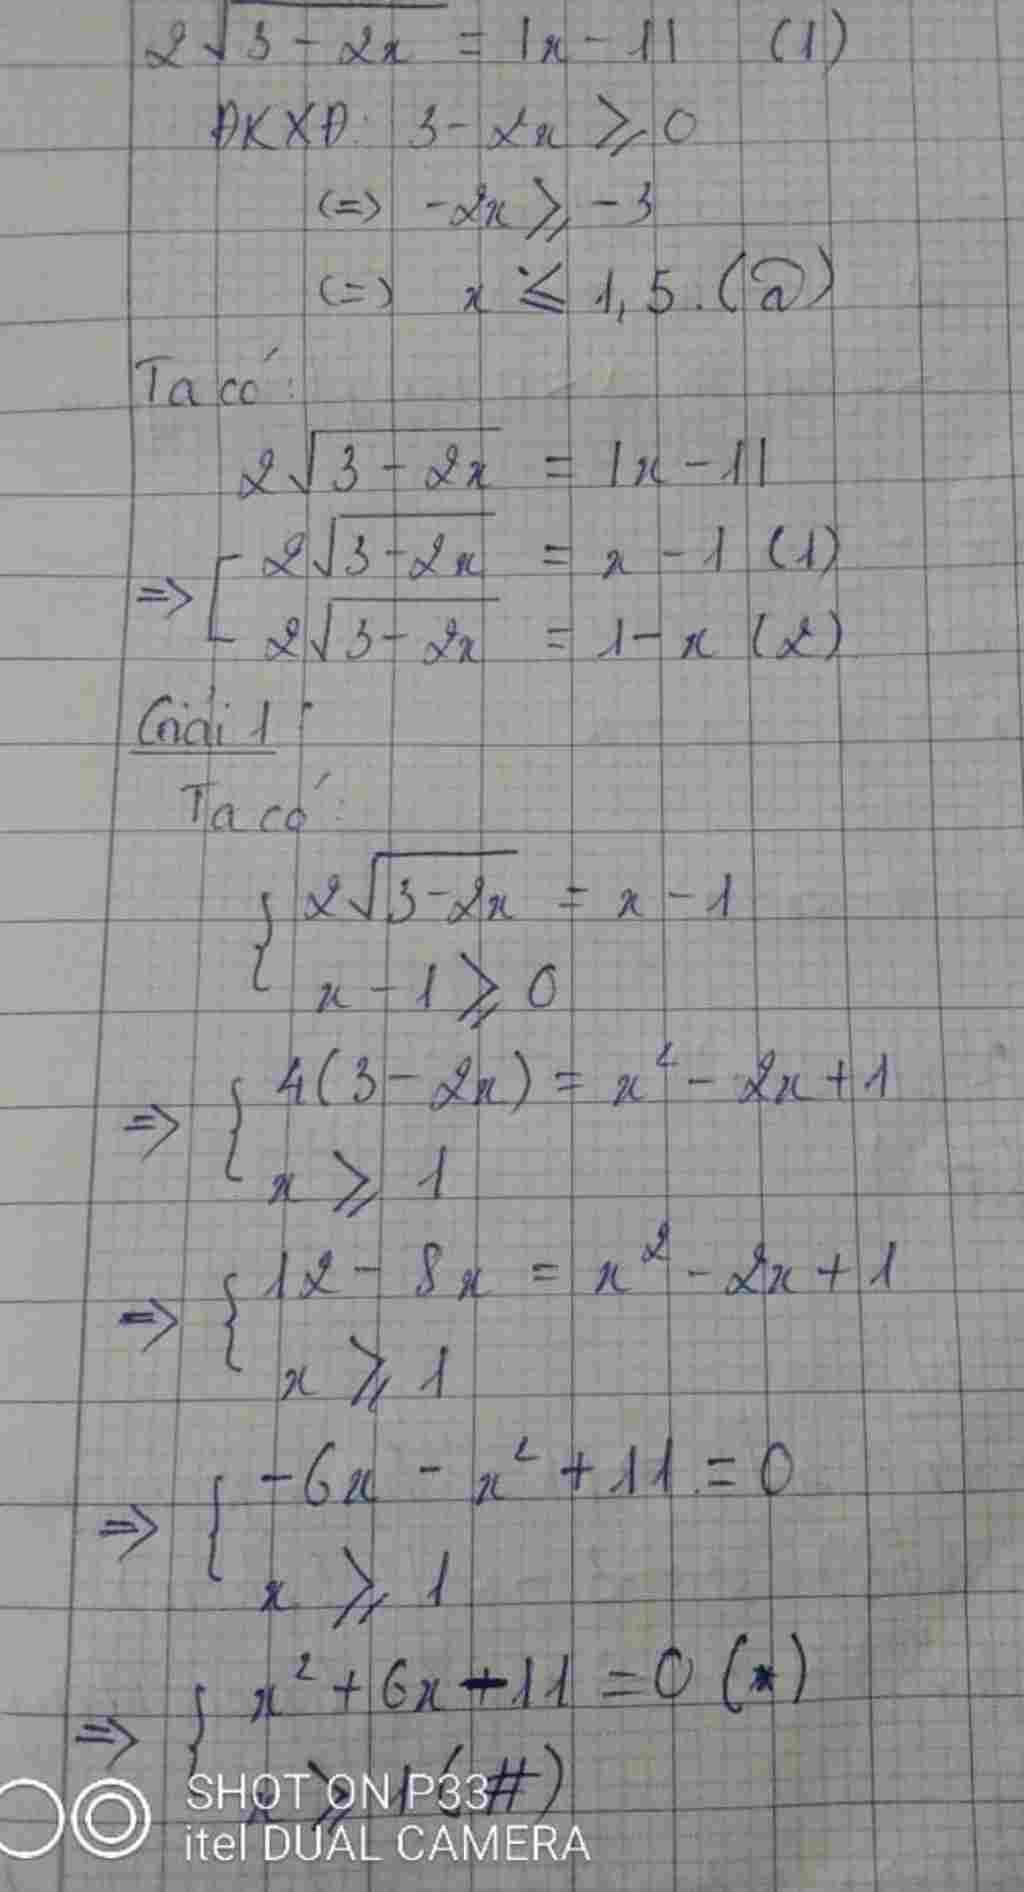 2√3-2x = |x-1| (1)
ĐKXĐ: 3-2x ⩾ 0
(=> -2x ⩾ -3
(=) x ≤ 1,5. (a)
Ta có:
2√3-2x = |x-1|
=> [ 2√3-2x = x-1 (1)
2√3-2x = 1-x (2)
Giải 1:
Ta có:
{ 2√3-2x = x-1
x-1 ⩾ 0
=> { 4(3-2x) = x² - 2x+1
x ⩾ 1
=> { 12 - 8x = x² - 2x + 1
x ⩾ 1
=> { -6x - x² + 11 = 0
x ⩾ 1
=> { x² + 6x - 11 = 0 (*)
x ⩾ 1 (#)
SHOT ON P33
itel DUAL CAMERA